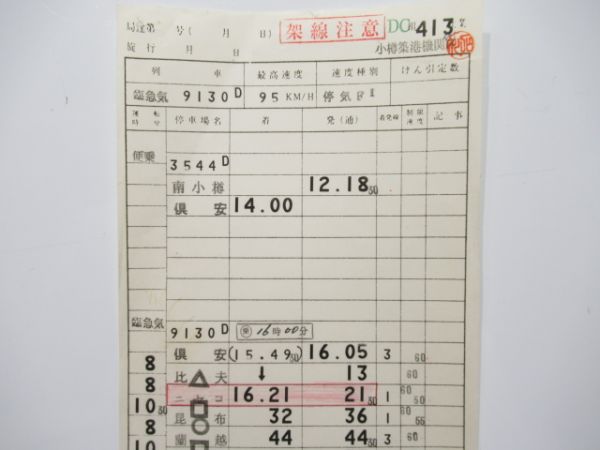 局達第 号( 月 日) 架線注意 DC組413
施行 月 日 小樽築港機関区
列 車 最高速度 速度種別 けん引定数
臨急気 9130D 95KM/H 停気F
運転時分 停車場名 着 発(通) 着発線 制限速度 記事
便乗
3544D
南小樽 12.18 30
倶安 14.00
臨急気
9130D 16時00分
8 倶安 (15.49 30) 16.05 3 60
8 比△夫 ↓ 13 60
10 30 ニセコ 16.21 21 30 1 60 50
8 昆布 32 36 1 60 55
10 蘭越 44 44 30 3 60